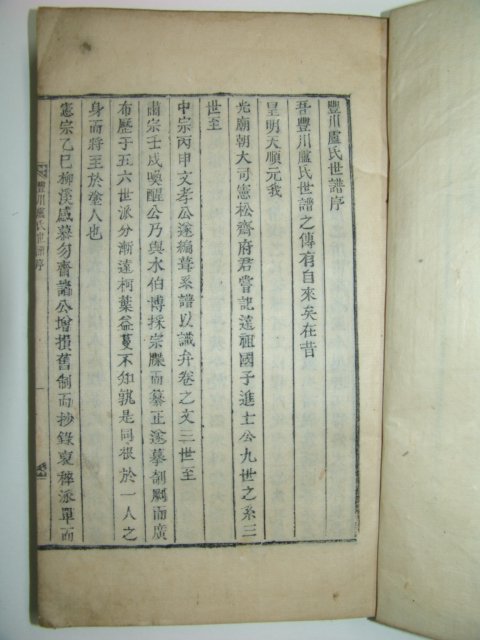 豐川盧氏世譜序
吾豐川盧氏世譜之傳有自來矣在昔
皇明天順元我
光廟朝大司憲松齋府君嘗記遠祖國子進士公九世之系三
世至
中宗丙申文孝公遂編葺系譜以識弁卷之文三世至
肅宗壬戌喚醒公乃與水伯博採宗牒而纂正遂摹剞劂而廣
布歷于五六世派分漸遠柯葉益蔓不知孰是同根於一人之
身而將至於塗人也
憲宗乙巳柳溪感慕勿齋諸公增損舊制而抄錄裒稡派單而
豐川盧氏世譜序 一